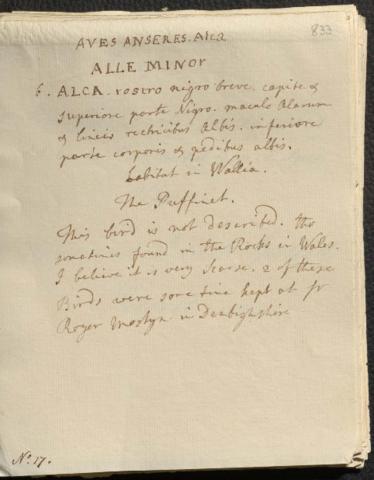 833
AVES ANSERES. Alca
ALLE MINOR
6. ALCA. rostro nigro breve. capite &
superiore parte Nigro. macula Alarum
& lineis rectricibus Albis. inferiore
parte corporis & pedibus albis.
habitat in Wallia.
The Puffinet.
This bird is not described. tho
sometimes found in the Rocks in Wales.
I believe it is very scarse. 2 of these
Birds were some time kept at Sr
Roger Mostyn in Denbighshire
No. 17.